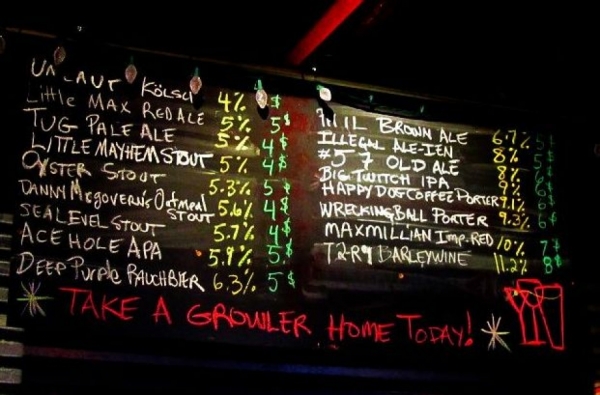 Kölsch 4% $
Little Max Red Ale 5% 5$
Tug Pale Ale 5% 4$
Little Mayhem Stout 5% 4$
Oyster Stout 5.3% 5$
Danny Mcgovern's Oatmeal Stout 5.6% 4$
Sea Level Stout 5.7% 4$
Ace Hole APA 5.9% 5$
Deep Purple Rauchbier 6.3% 5$
Brown Ale 6.7% 5$
Illegal Ale-ien 8% 5$
#5-7 Old Ale 8%
Big Twitch IPA 9% 6$
Happy Dog Coffee Porter 9.1% 6$
Wrecking Ball Porter 9.3% 6$
Maxmillian Imp. Red 10% 7$
T2-R9 Barleywine 11.2% 8$
Take A Growler Home Today!